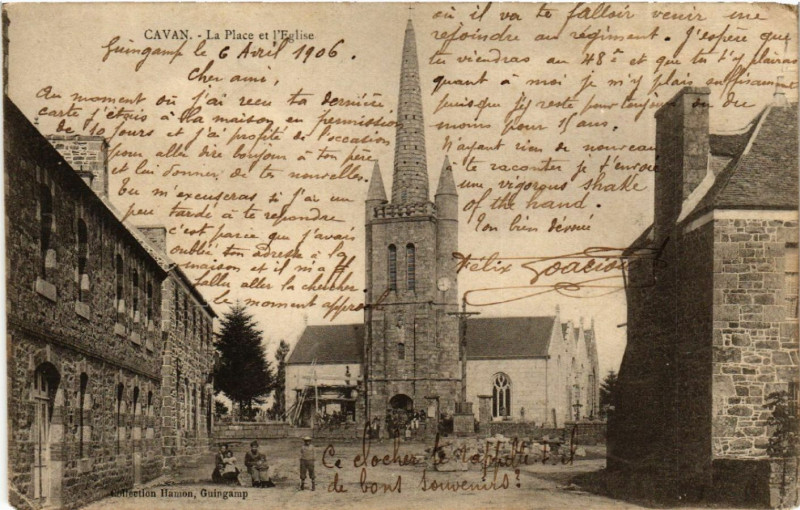 CAVAN. - La Place et l'Eglise
Guingamp le 6 Avril 1906.
Cher ami,
Au moment où j'ai recu ta dernière
carte j'étais à la maison en permission
de 10 jours et j'ai profité de l'occation
pour aller dire bonjour à ton père
et lui donner de tes nouvelles.
Tu m'excuseras si j'ai un
peu tardé à te repondre
c'est parce que j'avais
oublié ton adresse à la
maison et il m'a f
fallu aller la chercher
le moment approche
où il va te falloir venir me
rejoindre au regiment. J'espère que
tu viendras au 48e et que tu t'y plairas
quant à moi je m'y plais suffisamment
puisque j'y reste pour toujours ou du
moins pour 15 ans.
N'ayant rien de nouveau
à te raconter je t'envoie
une vigorous shake
of the hand.
Ton bien dévoué
Félix
Ce clocher te rappelle t-il
de bons souvenirs?
Collection Hamon, Guingamp